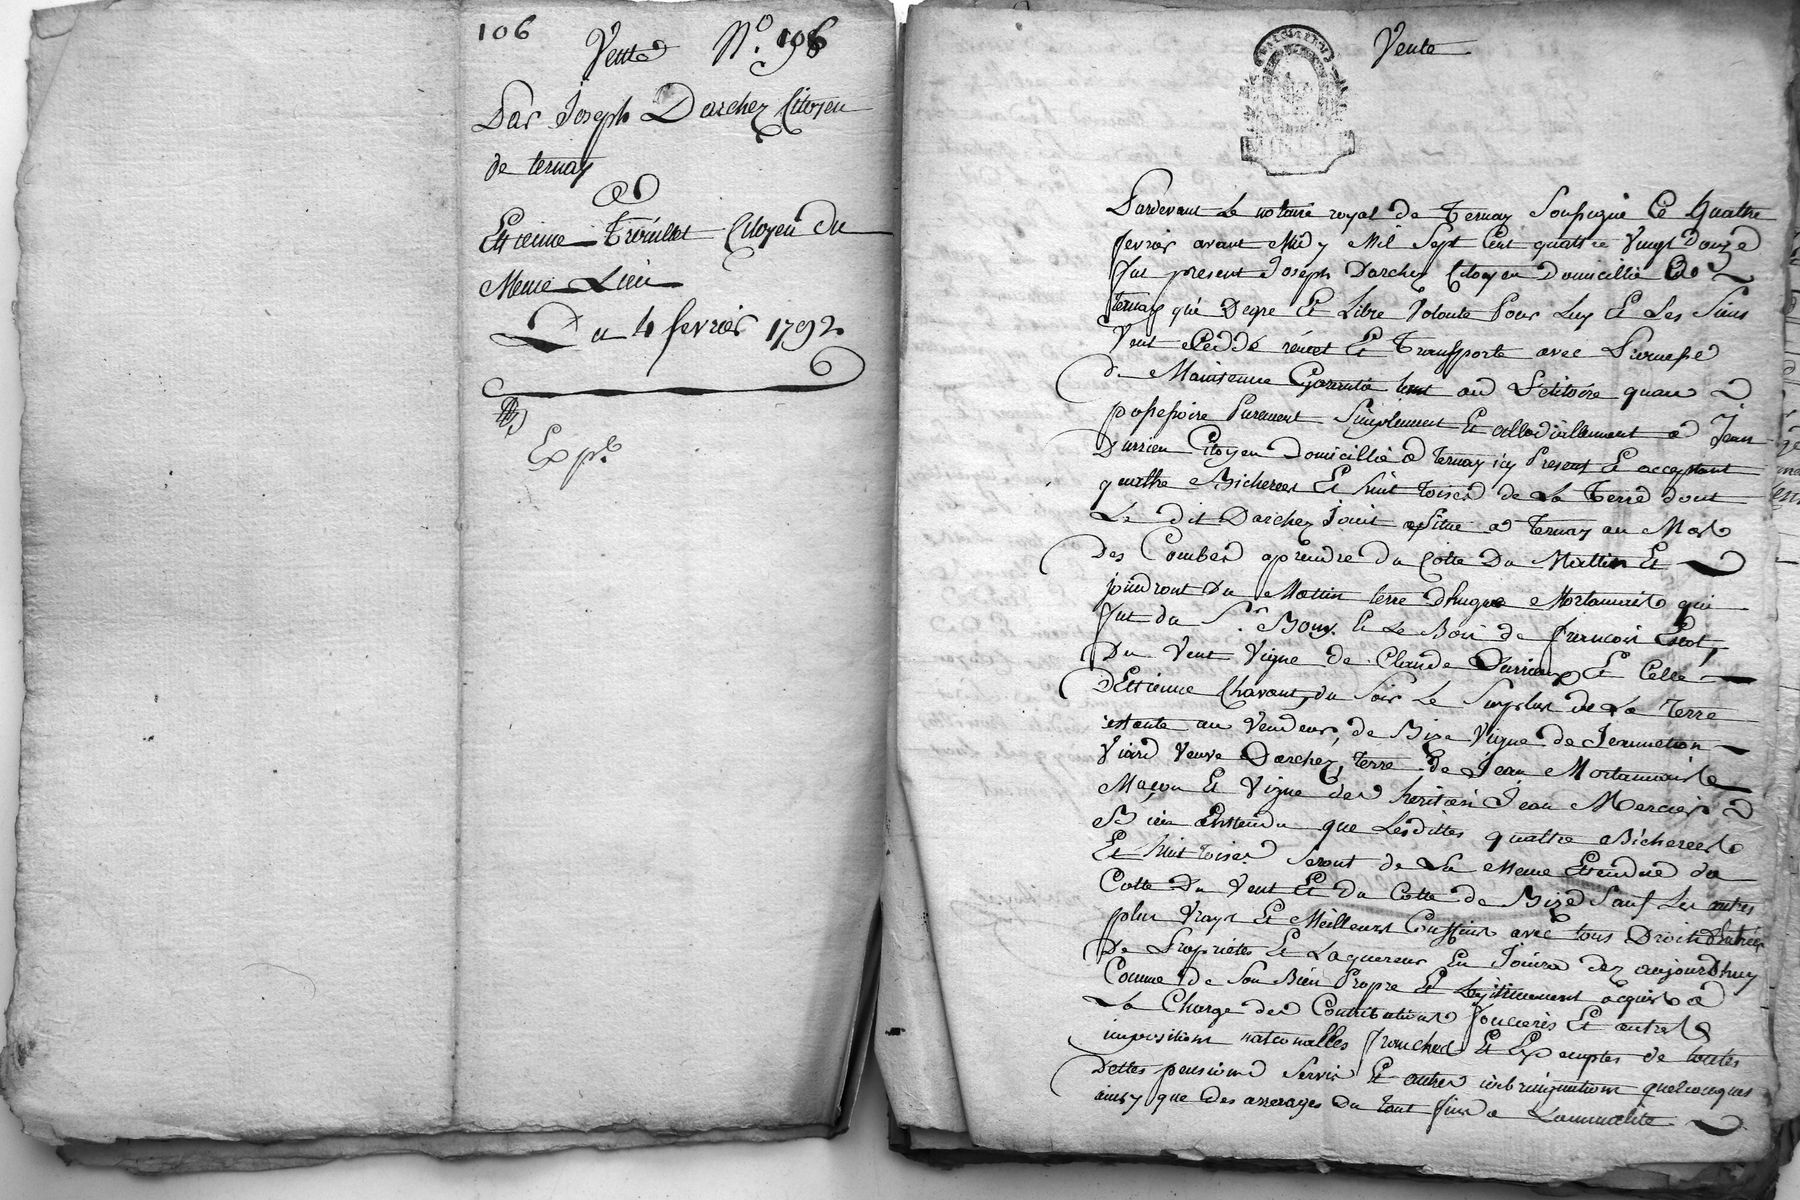 106
Vente N.º 196
Par Joseph Darchez Citoyen
de ternay
a
Ettienne Trouillet Citoyen du
Meme Lieu
Du 4 fevrier 1792
Exp.
Vente
Pardevant Le notaire royal de Ternay Soussigné Ce quatre
fevrier avant Midy Mil Sept Cent quattre Vingt douze
fut present Joseph Darchez Citoyen Domicillié a
Ternay qui De gre Et Libre Volonte Pour Luy Et Les Siens
Vent Cedde remet Et Transporte avec Promesse
de Maintenue Garentie tant au Petitoire quau
possessoire Purement Simplement Et allodiallement a Jean
Durrieu Citoyen Domicillié a Ternay icy Present Et acceptant
quatthe Bicherees Et huit toises de La Terre dont
Le dit Darchez Jouit Situe a Ternay au Mas
Des Combes aprendre du Cotte Du Mattin Et
joindront Du Mattin terre dhugue Mortamais qui
fut du S.r Bouy. Et Le Bois de francois
Du Vent Vigne de Claude Durrieux Et Celle
DEttienne Chavant, du Soir Le Surplus de La Terre
restante au Vendeur, de Bize Vigne de Jeannetton
Viard Veuve Darchez, terre de Jean Mortamais
Maçon Et Vigne des heritiers Jean Mercier
Bien Entendu que Lesdittes quattre Bicherees
Et huit toises Seront de La Meme Etendue du
Cotte Du Vent Et du Cotte de Bize Sauf Les autres
plus Vrays Et Meilleurs Confins avec tous Droits dEntrées
De Proprietes Et Laquereur En Jouira dez aujourdhuy
Comme de Son Bien Propre Et Legitimement acquis a
La Charge des Contributions foncieres Et autres
impositions nationalles franches Et Exemptes de toutes
Dettes pensions Servis Et autres quelconques
ainsy que des arrerages Du tout Jusqua Lannuelite